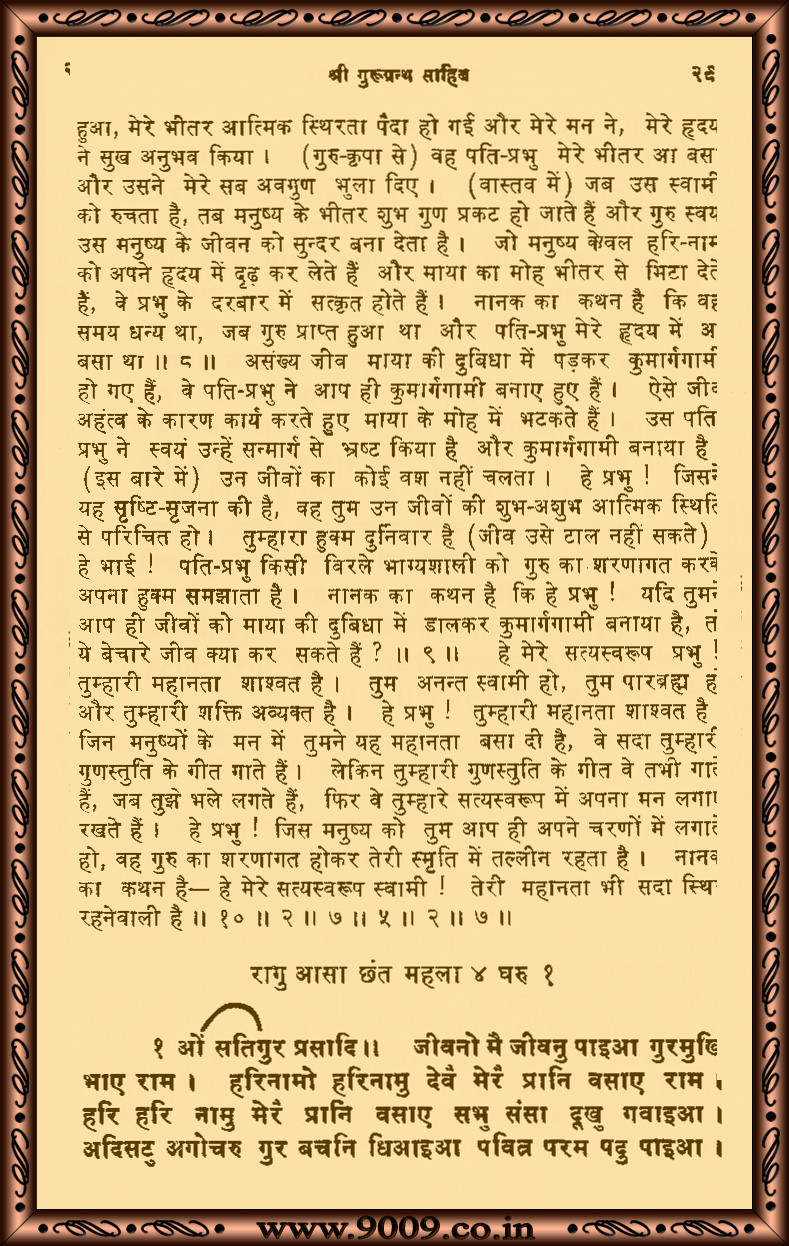 श्री गुरूग्रन्थ साहिब २९
हुआ, मेरे भीतर आत्मिक स्थिरता पैदा हो गई और मेरे मन ने, मेरे हृदय
ने सुख अनुभव किया । (गुरु-कृपा से) वह पति-प्रभु मेरे भीतर आ बस
और उसने मेरे सब अवगुण भुला दिए । (वास्तव में) जब उस स्वामी
को रुचता है, तब मनुष्य के भीतर शुभ गुण प्रकट हो जाते हैं और गुरु स्वय
उस मनुष्य के जीवन को सुन्दर बना देता है । जो मनुष्य केवल हरि-नाम
को अपने हृदय में दृढ़ कर लेते हैं और माया का मोह भीतर से मिटा देते
हैं, वे प्रभु के दरबार में सत्कृत होते हैं । नानक का कथन है कि वह
समय धन्य था, जब गुरु प्राप्त हुआ था और पति-प्रभु मेरे हृदय में अ
बसा था ॥ ८ ॥ असंख्य जीव माया की दुबिधा में पड़कर कुमार्गगामी
हो गए हैं, वे पति-प्रभु ने आप ही कुमार्गगामी बनाए हुए हैं । ऐसे जीव
अहंत्व के कारण कार्य करते हुए माया के मोह में भटकते हैं । उस पति
प्रभु ने स्वयं उन्हें सन्मार्ग से भ्रष्ट किया है और कुमार्गगामी बनाया है
(इस बारे में) उन जीवों का कोई वश नहीं चलता । हे प्रभु ! जिसने
यह सृष्टि-सृजना की है, वह तुम उन जीवों की शुभ-अशुभ आत्मिक स्थिति
से परिचित हो । तुम्हारा हुक्म दुर्निवार है (जीव उसे टाल नहीं सकते)
हे भाई ! पति-प्रभु किसी विरले भाग्यशाली को गुरु का शरणागत करके
अपना हुक्म समझाता है । नानक का कथन है कि हे प्रभु ! यदि तुमने
आप ही जीवों को माया की दुबिधा में डालकर कुमार्गगामी बनाया है, त
ये बेचारे जीव क्या कर सकते हैं ? ॥ ९ ॥ हे मेरे सत्यस्वरूप प्रभु !
तुम्हारी महानता शाश्वत है । तुम अनन्त स्वामी हो, तुम पारब्रह्म ह
और तुम्हारी शक्ति अव्यक्त है । हे प्रभु ! तुम्हारी महानता शाश्वत है
जिन मनुष्यों के मन में तुमने यह महानता बसा दी है, वे सदा तुम्हारी
गुणस्तुति के गीत गाते हैं । लेकिन तुम्हारी गुणस्तुति के गीत वे तभी गाते
हैं, जब तुझे भले लगते हैं, फिर वे तुम्हारे सत्यस्वरूप में अपना मन लगाए
रखते हैं । हे प्रभु ! जिस मनुष्य को तुम आप ही अपने चरणों में लगाते
हो, वह गुरु का शरणागत होकर तेरी स्मृति में तल्लीन रहता है । नानक
का कथन है— हे मेरे सत्यस्वरूप स्वामी ! तेरी महानता भी सदा स्थि
रहनेवाली है ॥ १० ॥ २ ॥ ७ ॥ ५ ॥ २ ॥ ७ ॥
रागु आसा छंत महला ४ घरु १
१ ओं सतिगुर प्रसादि ॥ जीवनो मै जीवनु पाइआ गुरमुखि
भाए राम । हरिनामो हरिनामु देवै मेरै प्रानि वसाए राम ।
हरि हरि नामु मेरै प्रानि वसाए सभु संसा दूखु गवाइआ ।
अदिसटु अगोचरु गुर बचनि धिआइआ पवित्र परम पदु पाइआ ।
www.9009.co.in